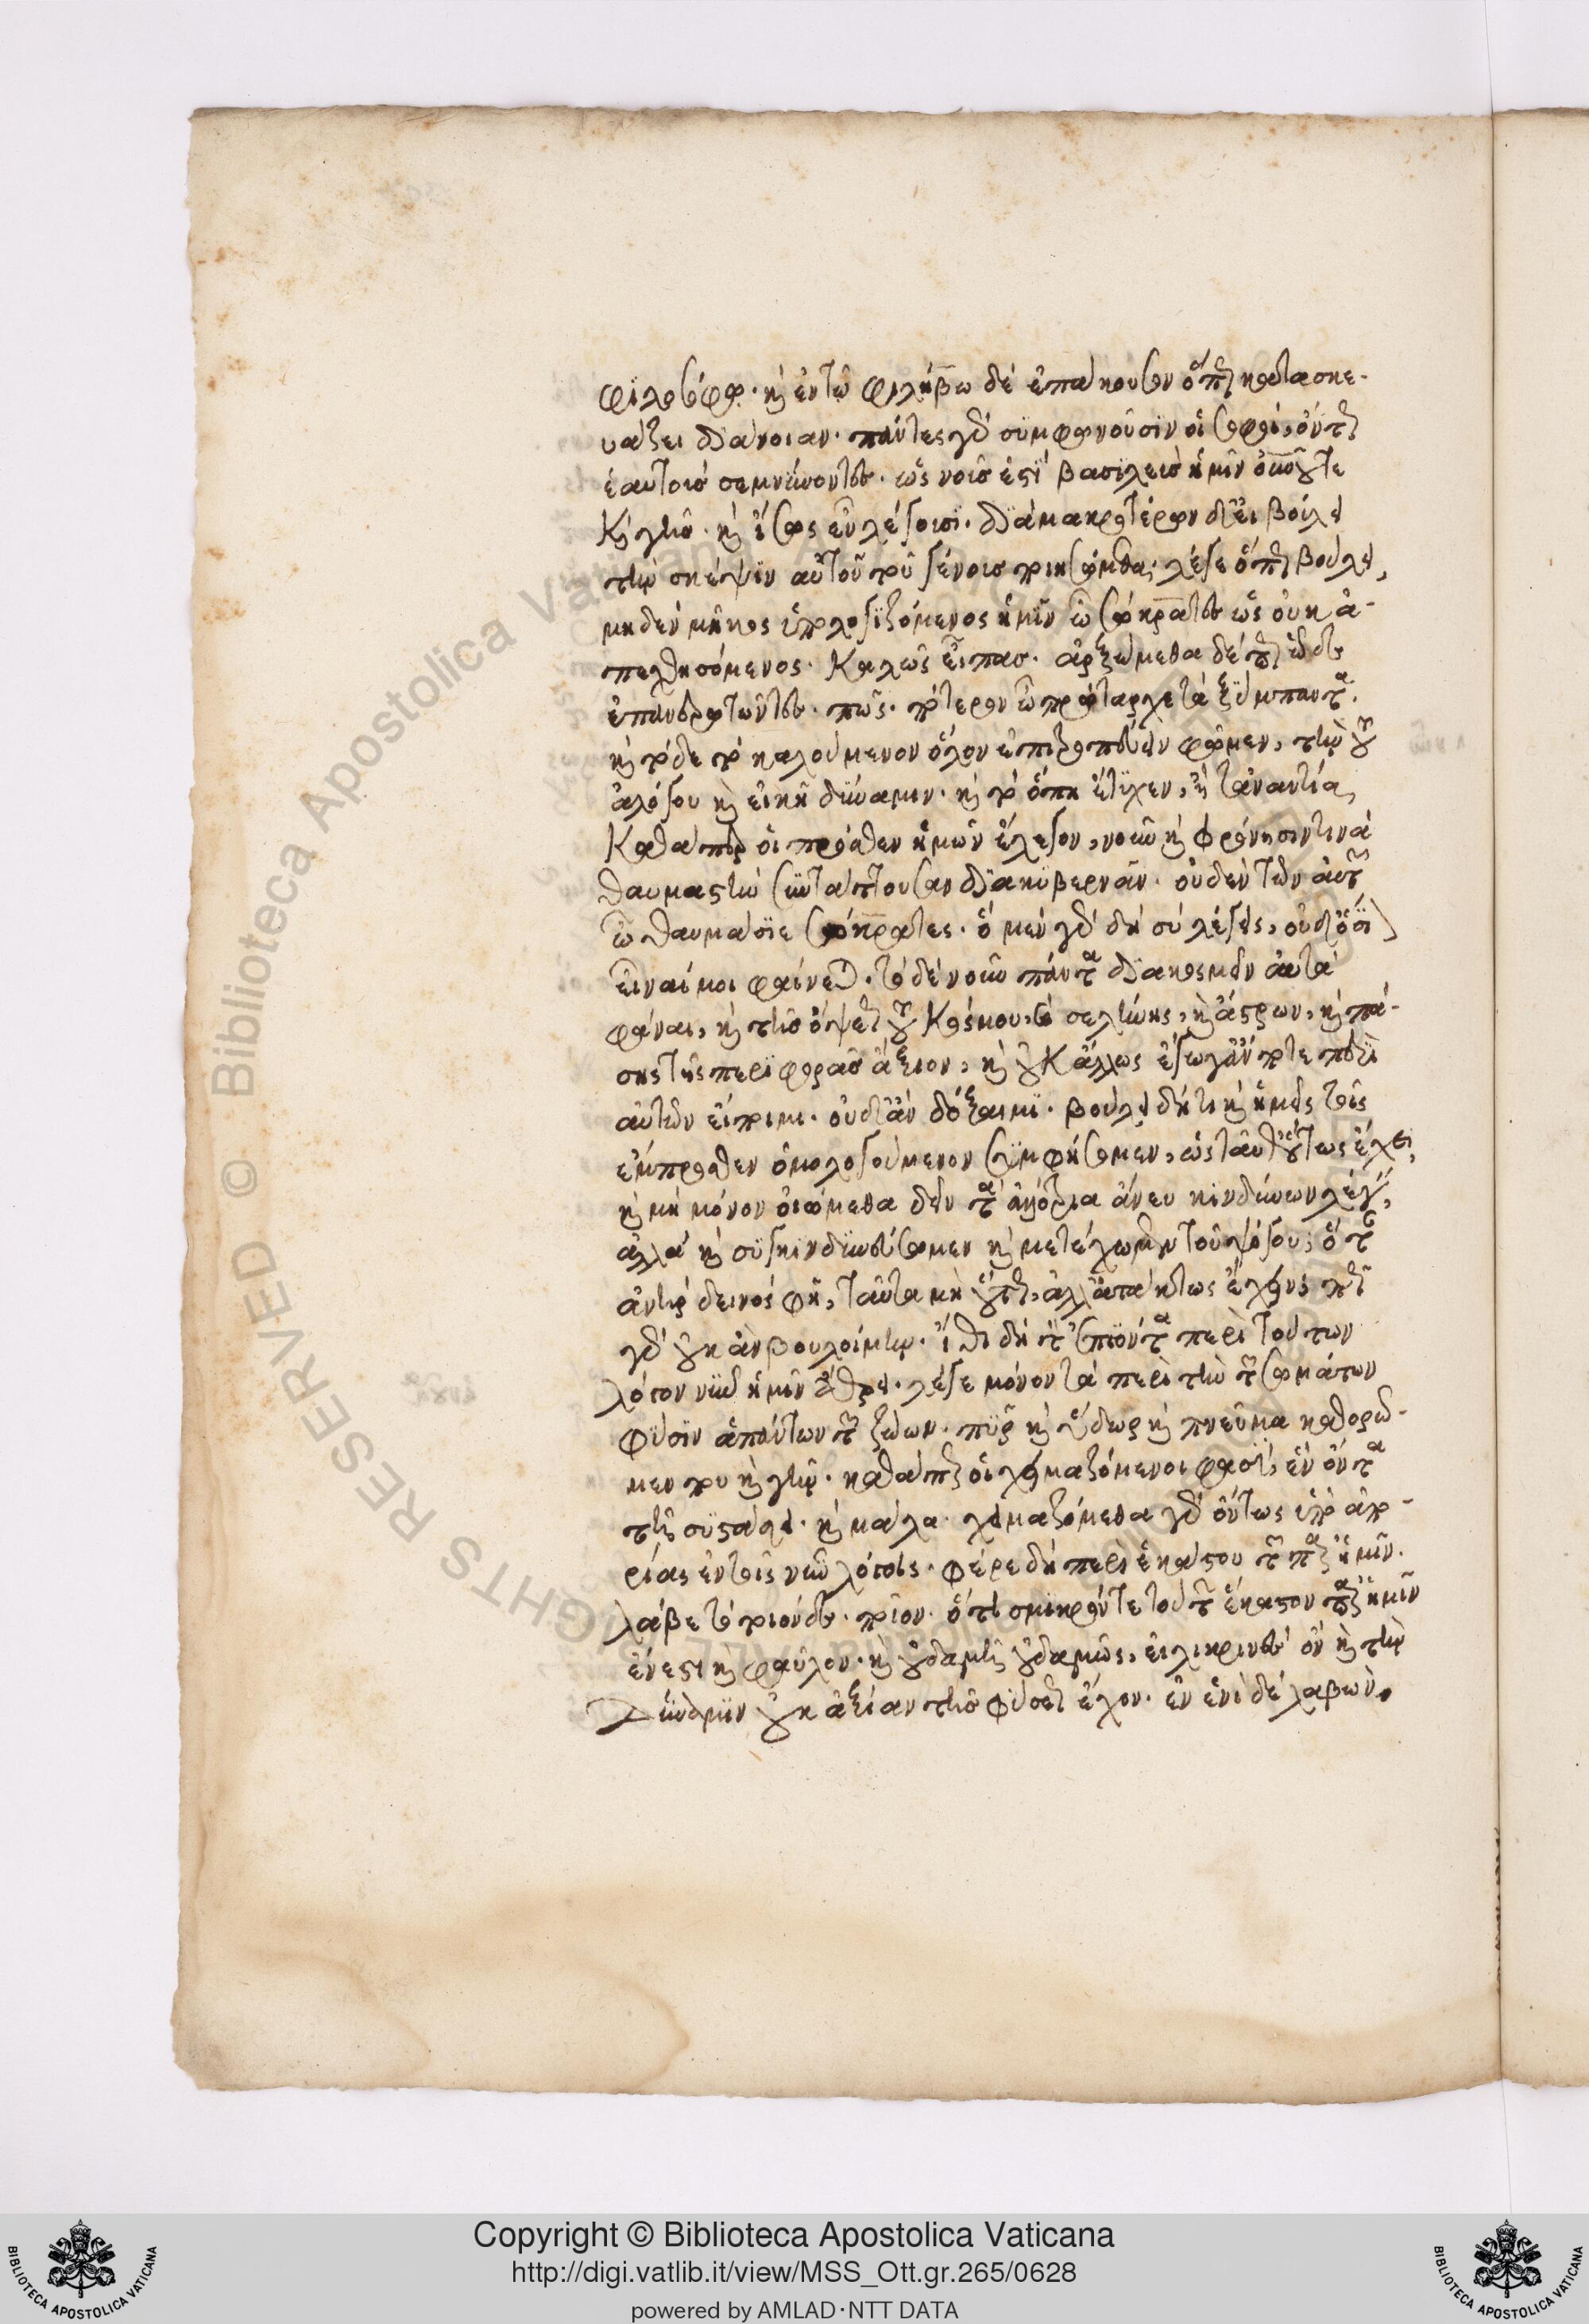 φιλοσόφῳ· καὶ ἐν τῷ φιλήβῳ δὲ ἐπάκουσον ὅπως κατασκε-
υάζει διάνοιαν· πάντες γὰρ συμφωνοῦσιν οἱ σοφοί, ὄντως
ἑαυτοὺς σεμνύνοντες· ὡς νοῦς ἐστὶ βασιλεὺς ἡμῖν οὐρανοῦ τε
καὶ γῆς· καὶ ἴσως εὖ λέγουσι· διὰ μακροτέρων δ' εἰ βούλει
τὴν σκέψιν αὐτοῦ τοῦ γένους ποιησώμεθα· λέγε ὅπως βούλει,
μηδὲν μῆκος ὑπολογιζόμενος ἡμῖν ὦ σώκρατες ὡς οὐκ ἀ-
πεχθησόμενος· καλῶς εἶπας· ἀρξώμεθα δέ πως ὧδε
ἐπανερωτῶντες· πῶς· πότερον ὦ πρώταρχε τὰ ξύμπαντα
καὶ τόδε τὸ καλούμενον ὅλον ἐπιτροπεύειν φῶμεν, τὴν τοῦ
ἀλόγου καὶ εἰκῆ δύναμιν· καὶ τὸ ὅπη ἔτυχεν, ἢ τἀναντία,
καθάπερ οἱ πρόσθεν ἡμῶν ἔλεγον, νοῦν καὶ φρόνησιν τινὰ
θαυμαστὴν συντάττουσαν διακυβερνᾶν· οὐδὲν τῶν αὐτῶν
ὦ θαυμάσιε σώκρατες· ὃ μὲν γὰρ δὴ σὺ λέγεις, οὐδ' ὅσιον
εἶναί μοι φαίνεται· τὸ δὲ νοῦν πάντα διακοσμεῖν αὐτὰ
φάναι, καὶ τῆς ὄψεως τοῦ κόσμου, καὶ σελήνης, καὶ ἄστρων, καὶ πά-
σης τῆς περιφορᾶς ἄξιον, καὶ οὐκ ἄλλως ἔγωγ' ἄν ποτε περὶ
αὐτῶν εἴποιμι· οὐδ' ἂν δόξαιμι· βούλει δῆτι καὶ ἡμεῖς τοῖς
ἔμπροσθεν ὁμολογούμενον συμφήσωμεν, ὡς ταῦθ' οὕτως ἔχει,
καὶ μὴ μόνον οἰώμεθα δεῖν τὰ ἀλλότρια ἄνευ κινδύνων λέγειν,
ἀλλὰ καὶ συγκινδυνεύσωμεν καὶ μετέχωμεν τοῦ ψόγου, ὅταν
ἀνὴρ δεινὸς φῇ, ταῦτα μὴ οὕτως, ἀλλ' ἀτάκτως ἔχειν, πῶς
γὰρ οὐκ ἂν βουλοίμην· ἴθι δὴ τὸν ἐπιόντα περὶ τούτων
λόγον νῦν ἡμῖν ἄθρει· λέγε μόνον τὰ περὶ τὴν τῶν σωμάτων
φύσιν ἁπάντων τῶν ζώων· πῦρ καὶ ὕδωρ καὶ πνεῦμα καθορῶ-
μεν που καὶ γῆν· καθάπερ οἱ χειμαζόμενοι φασὶν, ἐνόντα
τῇ συστάσει· καὶ μάλα· χειμαζόμεθα γὰρ ὄντως ὑπ' ἀπο-
ρίας ἐν τοῖς νῦν λόγοις· φέρε δὴ περὶ ἑκάστου τῶν παρ' ἡμῖν
λάβε τὸ τοιόνδε· ποῖον· ὅτι σμικρόν τε τούτων ἕκαστον παρ' ἡμῖν
ἔνεστι καὶ φαῦλον· καὶ οὐδαμῇ οὐδαμῶς, εἰλικρινὲς ὂν καὶ τὴν
δύναμιν οὐκ ἀξίαν τῆς φύσεως ἔχον· ἐν ἑνὶ δὲ λαβὼν
Copyright © Biblioteca Apostolica Vaticana
http://digi.vatlib.it/view/MSS_Ott.gr.265/0628
powered by AMLAD·NTT DATA